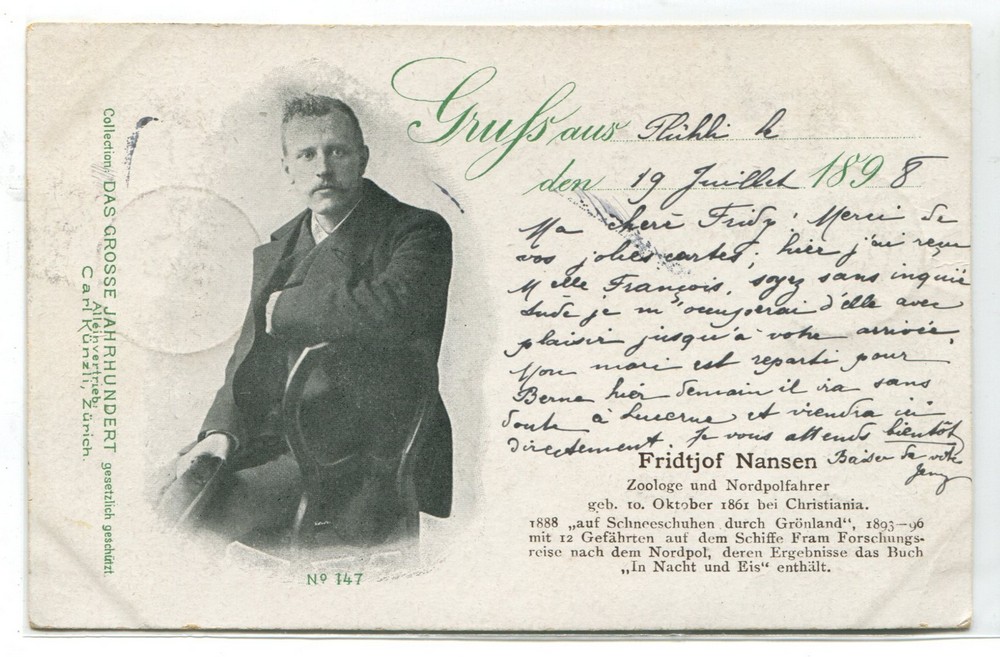 Gruß aus Flühli le
den 19 Juillet 1898
Ma chère Fridy! Merci de
vos jolies cartes; hier j'ai reçu
Melle François, soyez sans inquié
tude je m'occuperai d'elle avec
plaisir jusqu'à votre arrivée,
Mon mari est reparti pour
Berne hier demain il ira sans
doute à Lucerne et viendra ici
directement. Je vous attends bientôt
Baiser de votre
Jeny
Fridtjof Nansen
Zoologe und Nordpolfahrer
geb. 10. Oktober 1861 bei Christiania.
1888 „auf Schneeschuhen durch Grönland“, 1893—96
mit 12 Gefährten auf dem Schiffe Fram Forschungs-
reise nach dem Nordpol, deren Ergebnisse das Buch
„In Nacht und Eis“ enthält.
Collection: DAS GROSSE JAHRHUNDERT gesetzlich geschützt.
Alleinvertrieb:
Carl Künzli, Zürich.
Nº 147